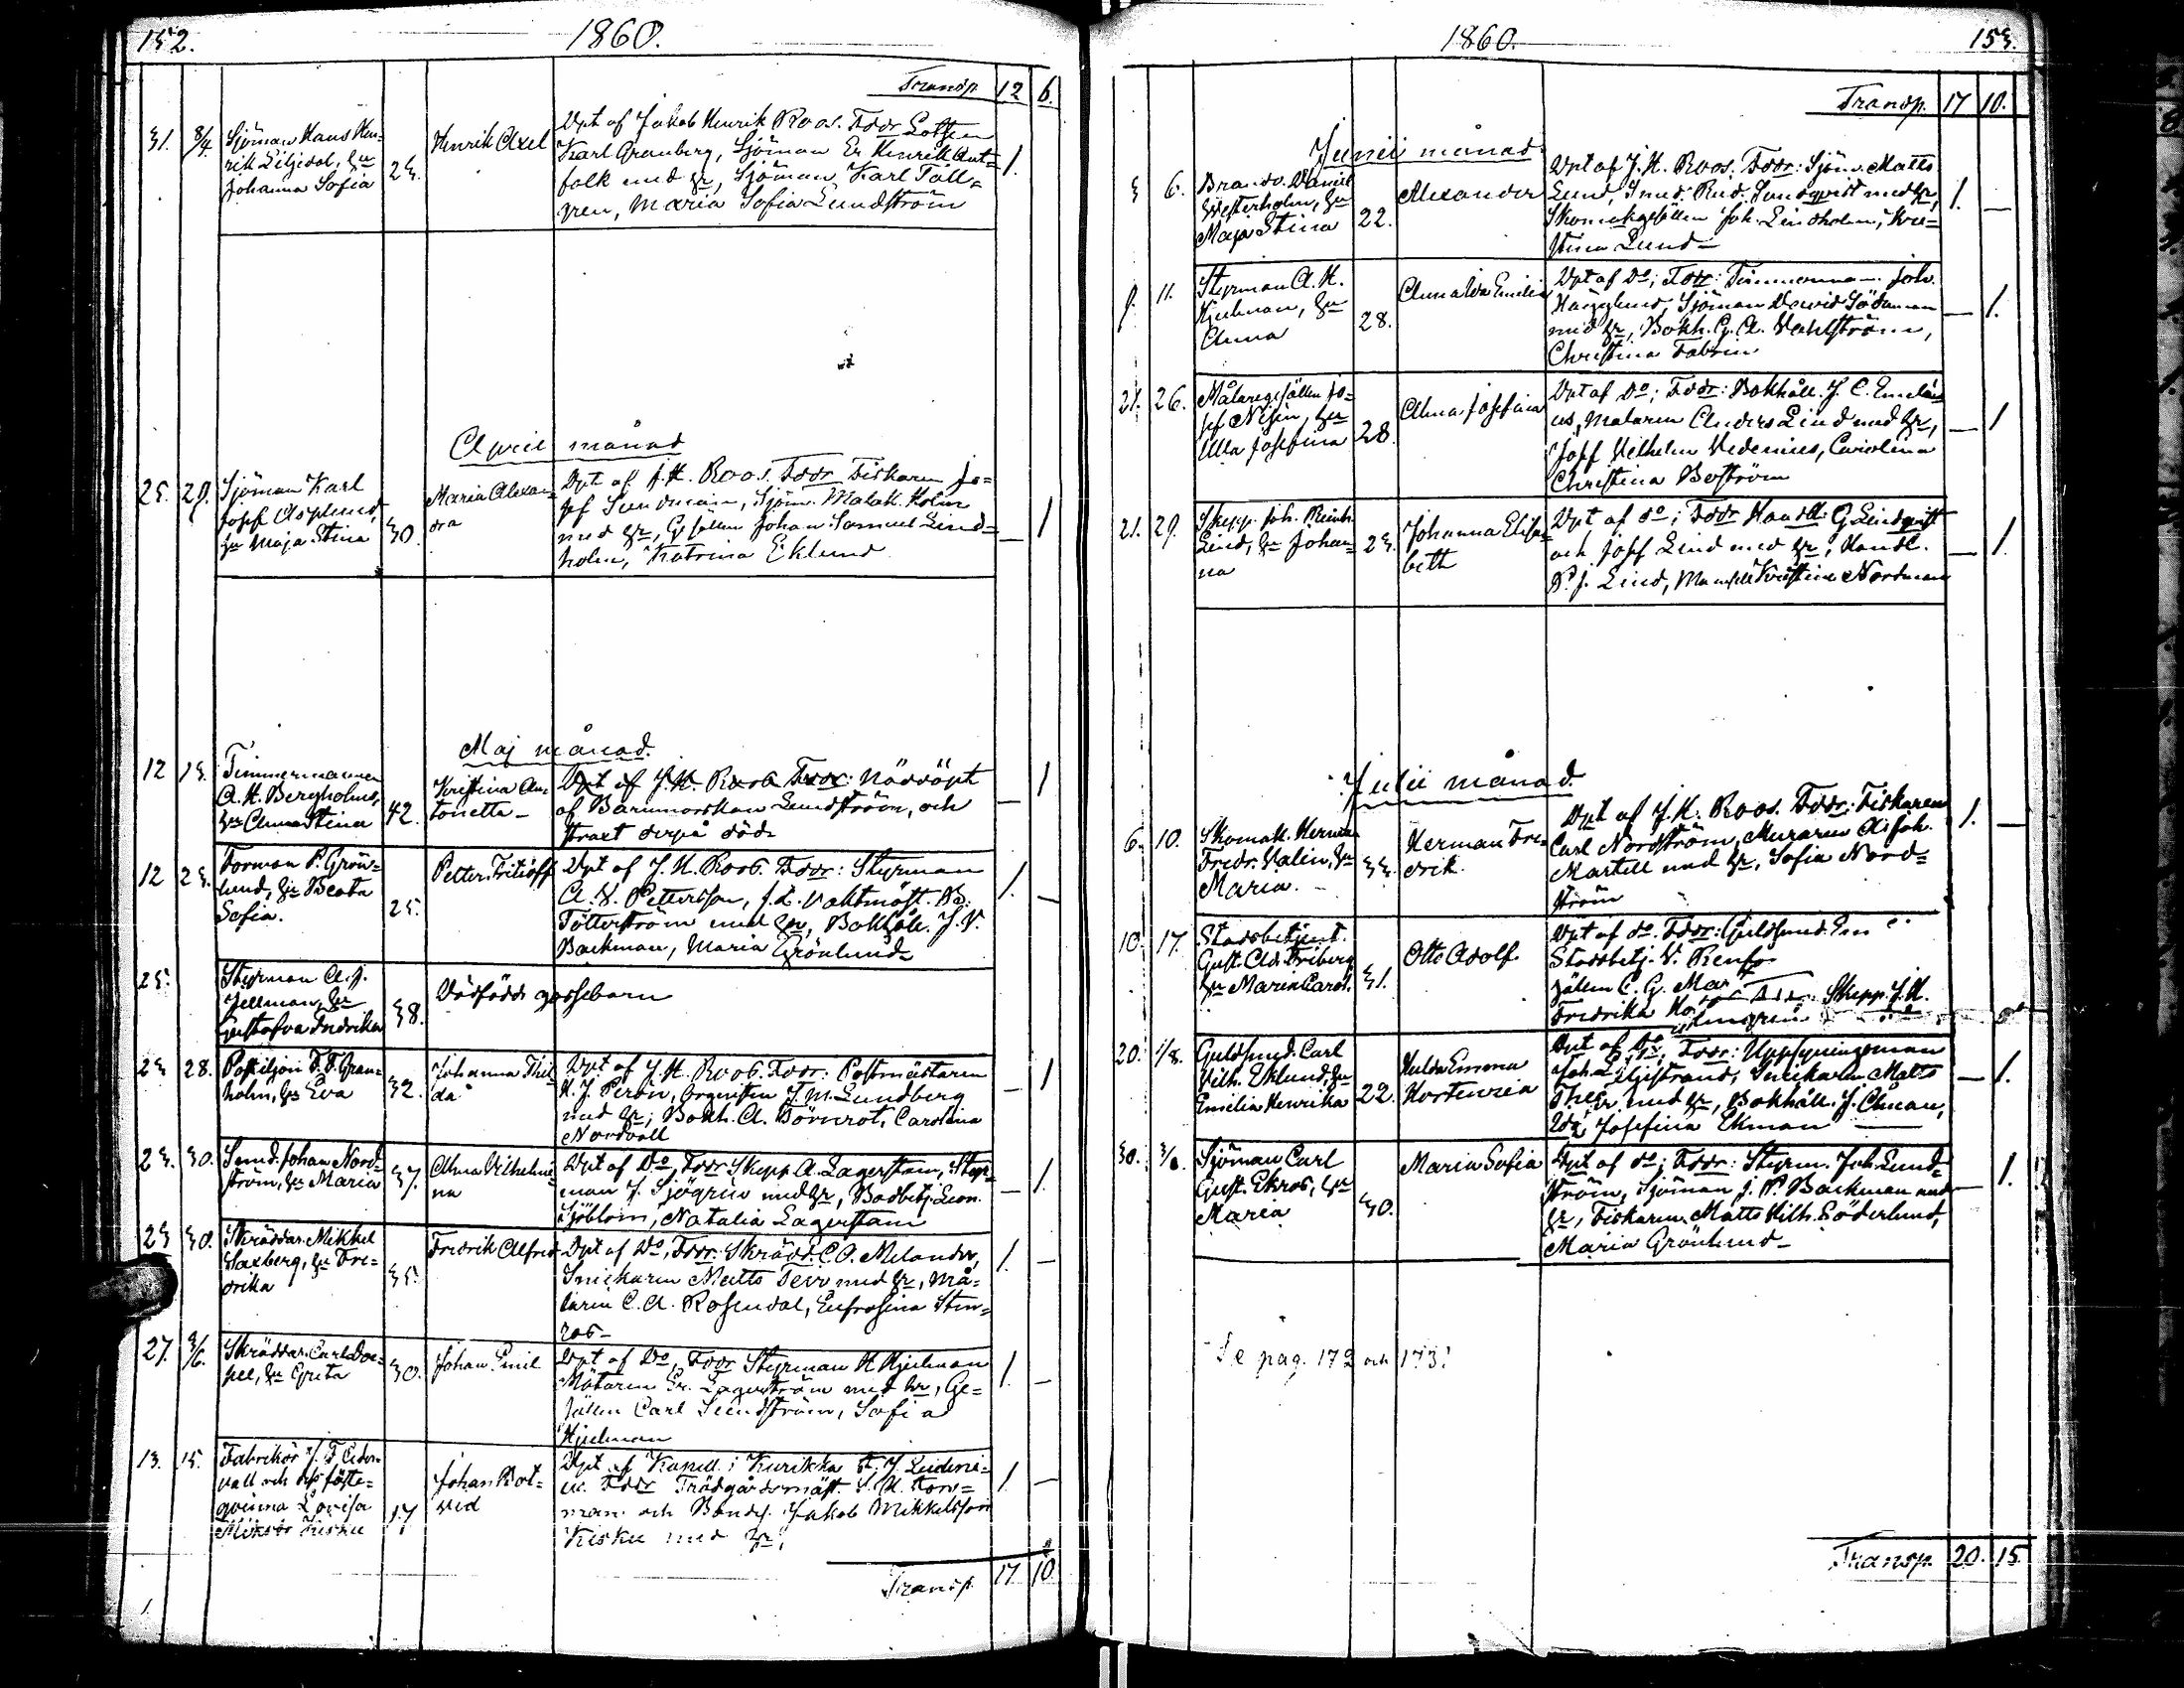 152.
1860.
Transp. 12 6.
31. 8/4. Sjöman Hans Hen=
rik Liljedal, hu
Johanna Sofia
23.
Henrik Axel
Döpt af Jakob Henrik Roos. Foddr Lotsen
Karl Granberg, Sjöman Er. Henrik Ant=
folk med hu, Sjöman Karl Täll=
gren, Maria Sofia Lundström
1.
April månad
25. 29. Sjöman Karl
Josef Asplund,
hu Maja Stina
30.
Maria Alexan=
dra
Döpt af J. H. Roos. Foddr Fiskaren Jo=
sef Sundman, Sjöm. Malak. Holm
med hu, Gesällen Johan Samuel Lind=
holm, Katrina Eklund
— 1
Maj månad.
12 13. Timmermannen
A. H. Bergholm,
hu Anna Stina
42.
Kristina An=
tonetta
Döpt af J. H. Roos Foddr: Nöddöpt
af Barnmorskan Lundström, och
straxt derpå död
— 1
12 23. Forman P. Grön=
lund, hu Beata
Sofia.
25.
Petter Fritioff
Döpt af J. H. Roos. Foddr: Styrman
A. V. Pettersson, f.d. Vaktmäst. B.
Tötterström med hu, Bokhåll. J. V.
Backman, Maria Grönlund
1. —
25. Styrman A. J.
Jellman, hu
Gustafva Fredrika
38.
Dödfödt gossebarn
23 28. Postiljon F. F. Gran=
holm, hu Eva
32.
Johanna Thil=
da
Döpt af J. H. Roos. Foddr: Postmästaren
H. J. Perón, Organisten J. M. Lundberg
med hu; Bokh. A. Börnrot, Carolina
Nordvall
— 1
23. 30. Smed. Johan Nord=
ström, hu Maria
37.
Alma Vilhelmi=
na
Döpt af Do, Foddr Skepp. A. Lagerstam, Styr=
man J. Sjögren med hu, Bodbetj. Leon.
Sjöblom, Natalia Lagerstam
— 1.
23 30. Skräddar. Mikkel
Saxberg, hu Fre=
drika
35.
Fredrik Alfred
Döpt af Do, Foddr: Skrädd. C. O. Melander,
Snickaren Matts Terr med hu, Må=
laren C. A. Rosendal, Eufrosina Sten=
ros
1. —
27. 3/6. Skräddar. Carl Dor=
pel, hu Greta
30.
Johan Emil
Döpt af Do, Foddr Styrman H Hjulman
Mätaren Er. Lagerström med hu, Ge=
sällen Carl Lundström, Sofia
Hjulman
1. —
13. 15. Fabrikör J. F. Ceder=
vall och dess fäste=
qvinna Lovisa
Kisku
17
Johan Bot=
vid
Döpt af Kapell. i Kurikka
Foddr Trädgårdsmäst. S. H. Fors=
man och Bonds. Jakob Mikkelsson
Kisku med hu,
1. —
Transp. 17 10.
1860.
153.
Transp. 17 10.
Junii månad
3 6. Brandv. Daniel
Westerholm, hu
Maja Stina
22.
Alexander
Döpt af J. H. Roos. Foddr: Sjöm. Matts
Lund, Smed. Rud. Sundqvist med hu,
Skomak.gesällen Joh. Lindholm, Kri=
stina Lund
1. —
9. 11. Styrman A. H.
Hjulman, hu
Anna
28.
Anna Ida Emilia
Döpt af Do; Foddr: Timmerman Joh.
Hägglund, Sjöman David Södman
med hu, Bokh. G. A. Wahlström,
Christina Fabrin
— 1.
21. 26. Målaregesällen Jo=
sef Nisén, hu
Ulla Josefina
28.
Alma Josefina
Döpt af Do; Foddr: Bokhåll. J. C. Emelé=
us, Mataren Anders Lind med hu,
Josef Vilhelm Vedenius, Carolina
Christina Boström
— 1
21. 29. Skepp. Joh. Reinh.
Lind, hu Johan=
na
23.
Johanna Elisa=
beth
Döpt af do; Foddr Handl: G. Lindqvist
och Josef Lind med hu, Handl.
P. J. Lind, Mamsell Kristina Nordman
— 1.
Julii månad.
6. 10. Skomak. Herman
Fredr. Valin, hu
Maria.
33.
Herman Fre=
drik.
Döpt af J. H. Roos. Foddr: Fiskaren
Carl Nordström, Muraren Joh.
Martell med hu, Sofia Nord=
ström
1. —
10. 17. Stadsbetjent.
Gust. Ad. Friberg
hu Maria Carol.
31.
Otto Adolf.
Döpt af do. Foddr: Guldsmed. Em
Stadsbetj. V. Renfo
sällen C. G. Mar
Fredrika Ho
Skepp. J. H.
20. 1/8. Guldsmed. Carl
Vilh. Eklund, hu
Emilia Henrika
22.
Hulda Emma
Hortensia
Döpt af Do, Foddr: Uppsyningsman
Joh. Liljestrand, Snickaren Matts
Thegr med hu, Bokhåll. J. Åman,
Ida Josefina Ekman
— 1.
30. Sjöman Carl
Gust. Ekros, hu
Maria
30.
Maria Sofia
Döpt af do; Foddr: Styrm. Joh. Lund=
ström, Sjöman J. P. Backman med
hu, Fiskaren Matts Vilh. Söderlund,
Maria Grönlund
— 1.
Se pag. 172 och 173.
Transp. 20. 15.